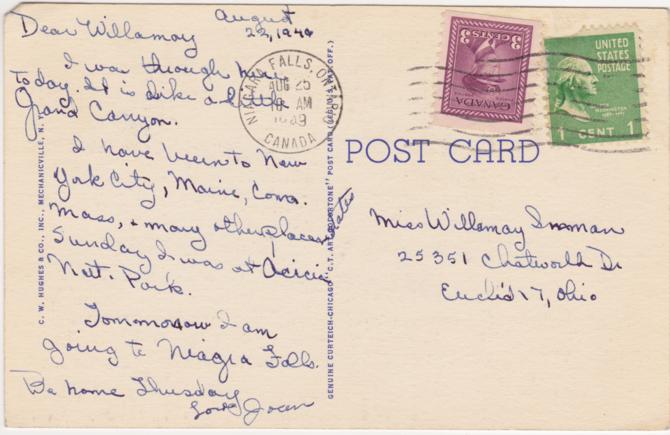 Dear Willamay
August
23, 1949
I was though here
today. It is like a little
Grand Canyon.
I have been to New
York City, Maine, Conn.
Mass, + many other places
states
Sunday I was at Acicia
Nat. Park.
Tommorow I am
going to Niagra Falls.
Be home Thusday
Love Joan
C. W. HUGHES & CO., INC., MECHANICVILLE, N. Y.
GENUINE CURTEICH-CHICAGO "C.T. ART-COLORTONE" POST CARD (REG. U.S. PAT. OFF.)
NIAGARA FALLS, ONTARIO
AUG 25
AM
CANADA
3 CENTS 3
CANADA
UNITED
STATES
POSTAGE
WASHINGTON
1 CENT 1
POST CARD
Miss Willamay Inman
25351 Chatworth Dr
Euclid 17, Ohio